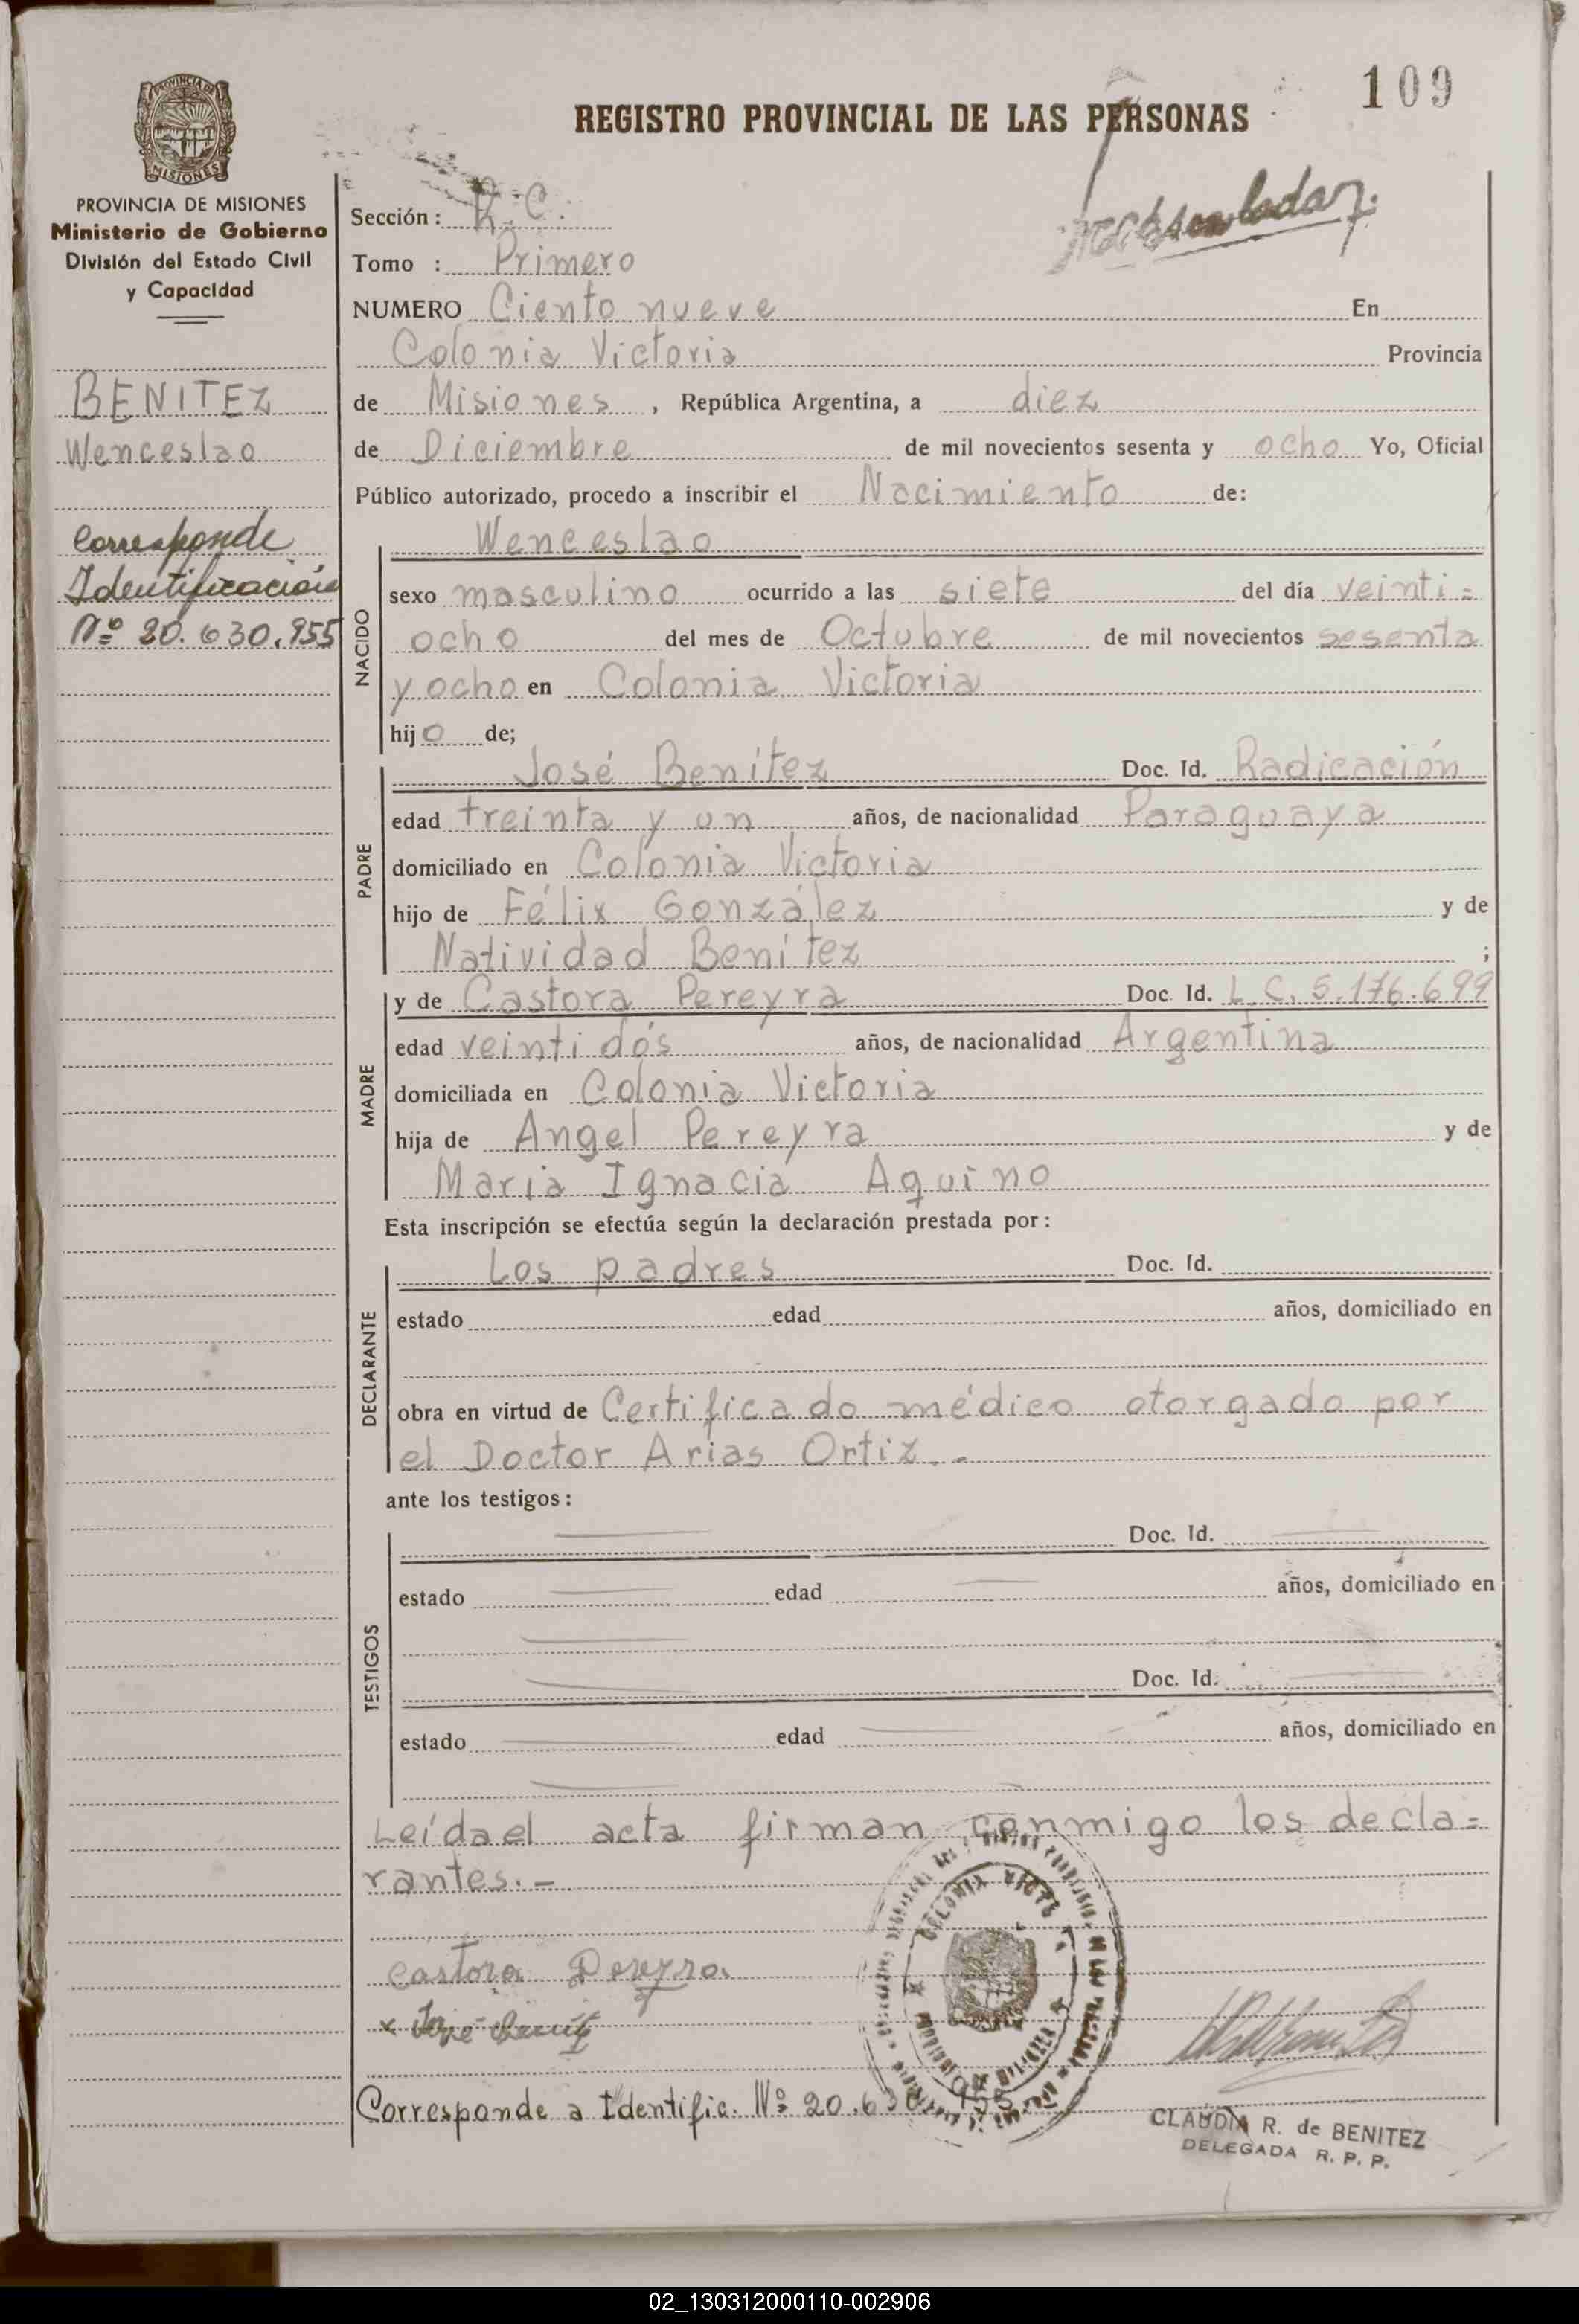 109
REGISTRO PROVINCIAL DE LAS PERSONAS
PROVINCIA DE MISIONES
Ministerio de Gobierno
División del Estado Civil
y Capacidad
BENITEZ
Wenceslao
Corresponde
Identificación
Nº 20.630.955
Sección: R.C.
Tomo : Primero
NUMERO Ciento nueve En
Colonia Victoria Provincia
de Misiones, República Argentina, a diez
de Diciembre de mil novecientos sesenta y ocho Yo, Oficial
Público autorizado, procedo a inscribir el Nacimiento de:
NACIDO
Wenceslao
sexo masculino ocurrido a las siete del día veinti=
ocho del mes de Octubre de mil novecientos sesenta
y ocho en Colonia Victoria
hijo de;
PADRE
José Benítez Doc. Id. Radicación
edad treinta y un años, de nacionalidad Paraguaya
domiciliado en Colonia Victoria
hijo de Félix González y de
Natividad Benítez ;
MADRE
y de Castora Pereyra Doc. Id. L.C. 5.176.699
edad veinti dós años, de nacionalidad Argentina
domiciliada en Colonia Victoria
hija de Angel Pereyra y de
Maria Ignacia Aquino
Esta inscripción se efectúa según la declaración prestada por:
DECLARANTE
Los padres Doc. Id.
estado edad años, domiciliado en
obra en virtud de Certificado médico otorgado por
el Doctor Arias Ortiz.-
ante los testigos:
TESTIGOS
Doc. Id.
estado edad años, domiciliado en
Doc. Id.
estado edad años, domiciliado en
Leída el acta firman conmigo los decla=
rantes.-
Castora Pereyra
x José Benitez
Corresponde a Identific. Nº 20.630.955
CLAUDIA R. de BENITEZ
DELEGADA R. P. P.
02_130312000110-002906